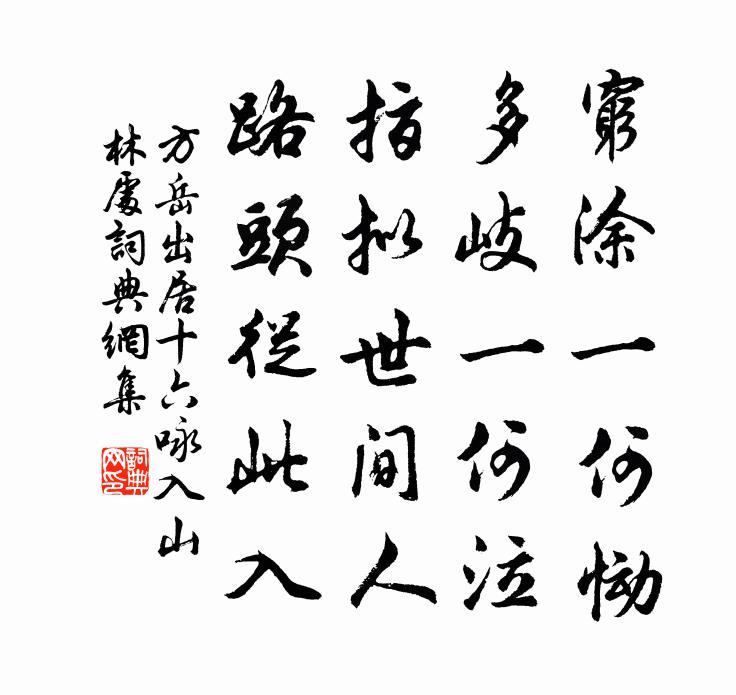 窮涂一何慟
多岐一何泣
指拟世间人
路頭從此入
方岳出居十六咏入山
林處詞典網集
詞典
网印